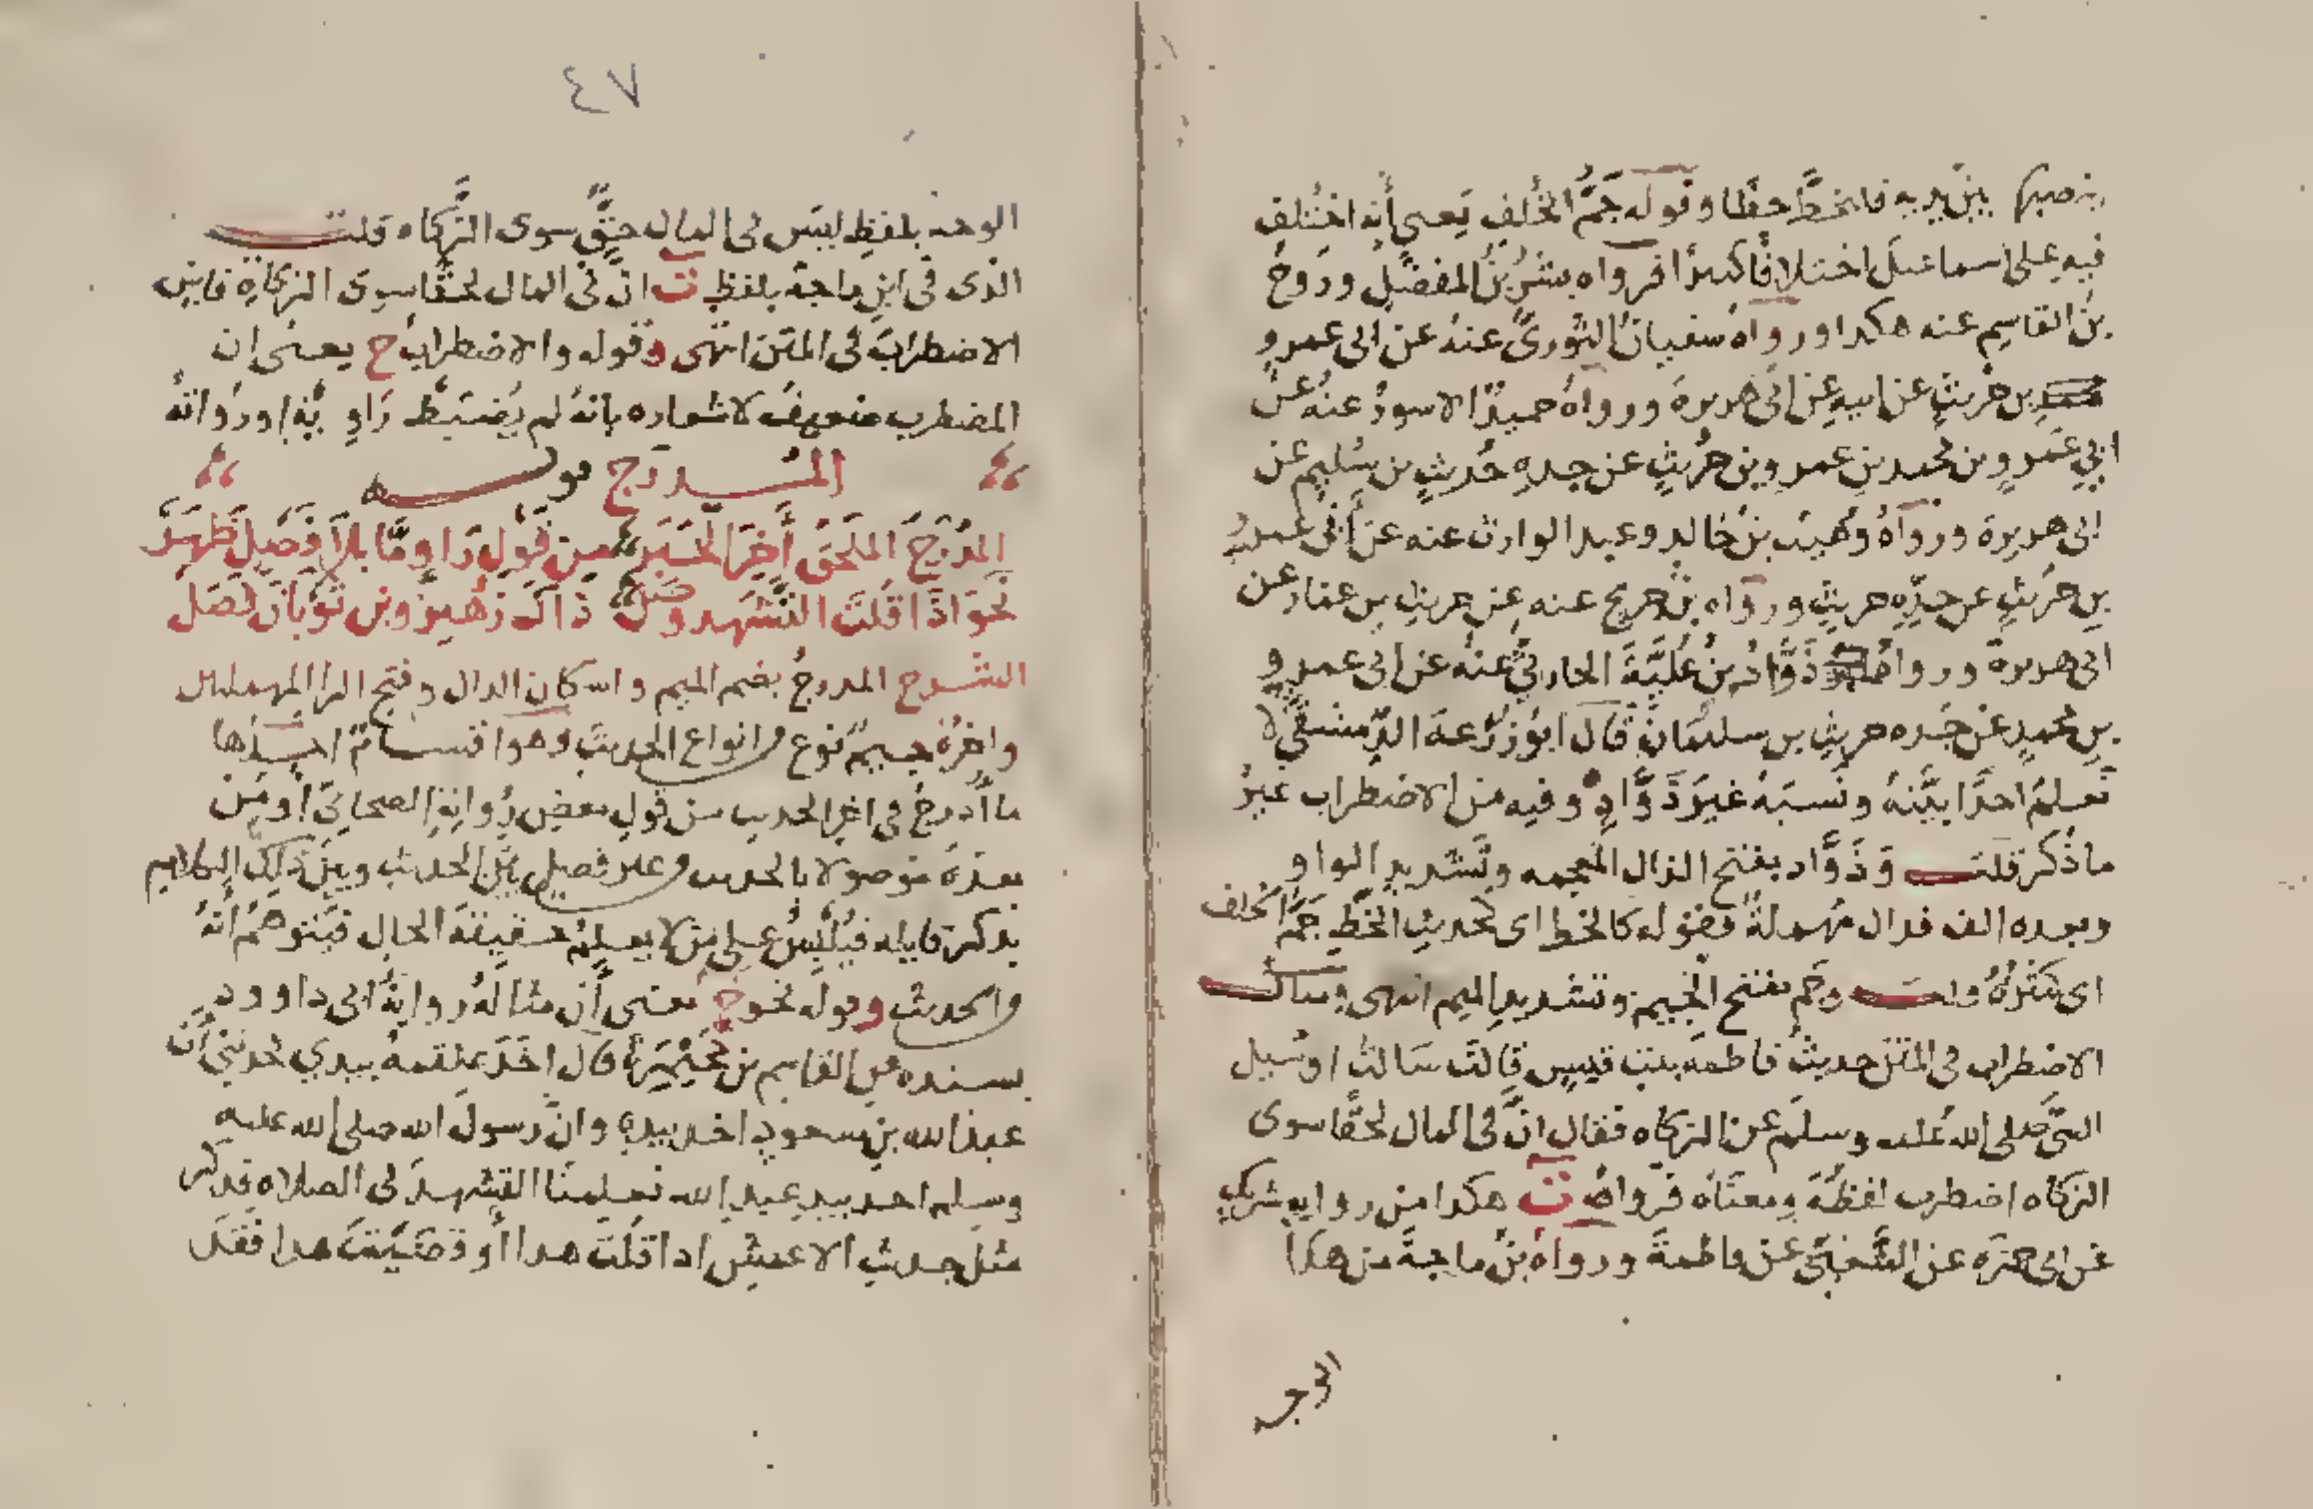 ينصبها بين يديه فليخط خطا وقوله جَمُّ الخُلف يَعني أنه اختلف
فيه على اسماعيل اختلافًا كثيرًا فرواه بشرُ بنُ المفضل وروحُ
بن القاسم عنه هكذا ورواه سفيان الثوريُّ عنه عن ابى عمرو
بن حُريثٍ عن ابيه عن ابى هريرة ورواهُ حميدُ الاسود عنه عن
ابي عَمرو بن محمد بن عمرو بن حُريثٍ عن جده حُريثِ بن سُليم عن
ابى هريرة ورواهُ وُهَيبُ بن خالد وعبد الوارث عنه عن أبى عمرو
بن حُريثٍ عن جدِّه حريثٍ ورواه بن جريج عنه عن حريث بن عمار عن
ابى هريرة ورواه ذَوَّادُ بنُ عُلبَةَ الحارثيُّ عنه عن ابى عمرو
بن محمدٍ عن جَده حريثِ بن سليمان قال ابُو زُرعةَ الدِّمشقيُّ لا
نَعلمُ احدًا بيَّنهُ ونسبَهُ غيرَ ذَوَّادٍ وفيه من الاضطراب غيرُ
ما ذُكر قلت وَذَوَّاد بفتح الذال المعجمه وتشديد الواو
وبعده الف فدال مُهملةٌ فقوله كالخط اى كحديثِ الخَطِّ جَمّ الخلف
اى كَثْرُهُ قلت وجَم بفتح الجيم وتشديد الميم انتهى ومثال
الاضطراب فى المتن حديثُ فاطمة بنت قيسٍ قالت سَالتُ اوسُيل
النبيُّ صلى الله عليه وسلم عن الزكاه فقال انَّ فى المال لحقًّا سوى
الزكاه اضطرب لفظُهُ ومعنَاه فرَواهُ ت هكذا من روايه شريكٍ
عن ابى حمزَه عن الشَّعبيِّ عن فاطمةَ ورواهُ بنُ ماجة من هكذا
الوجه
٤٧
الوجه بلفظِ ليسَ فى المال حقٌّ سوى الزَّكاه قلت
الذى فى ابن ماجة بلفظِ ت انَّ فى المال لحقًّا سوى الزكاةِ فاين
الاضطرابُ فى المتن انتهى وقوله والاضطرابُ ح يعنى ان
المضطرب ضعيفٌ لاشعاره بانهُ لم يَضبَطْ رَاوِيُّهُ اورُواتهُ
المُدرَج قوله
المُدْرَجُ المُلحَقُ أَخِرَ الخَبَر من قَوْلِ رَاوٍ مَّا بلاَ فَصْلٍ ظَهَرْ
نَحوَ اذَا قُلتَ التَّشَهد وصَل ذَاكَ زُهَيرٌ وبن ثَوْبَانَ فَصَلْ
الشرح المدرجُ بضم الميم واسكان الدال وفتح الرا المهملتين
واخرُهُ جيمٌ نوع من انواع الحديث وهو اقسامٌ احدُها
ما أُدرجَ فى اخر الحديث من قول بعض رُواته الصحابيِّ أومَن
بعدَهُ موصولا بالحديث من غير فصلٍ بَيْن الحديث وبينَ ذلك الكلام
بذكرِ قايله فيُلبَسُ على من لا يعلمُ حقيقةَ الحال فيَتوهمُ أنهُ
من الحديث وقوله نحو ح يعنى أن مثالهُ روايةُ ابى داوود
بسنده عن القاسم بن مُخَيْمِرَةَ قال اخَذَ علقمةُ بيدي فحدثنى أن
عبدَ الله بنَ مسعودٍ اخذ بيدِهِ وان رسولَ الله صلى الله عليه
وسلم اخذ بيدِ عبدِ الله فعلمنَا التشهدَ فى الصلاه فذكر
مثلَ حديثِ الاعمش اذا قلتَ هذا أو قضيتَ هذا فقد